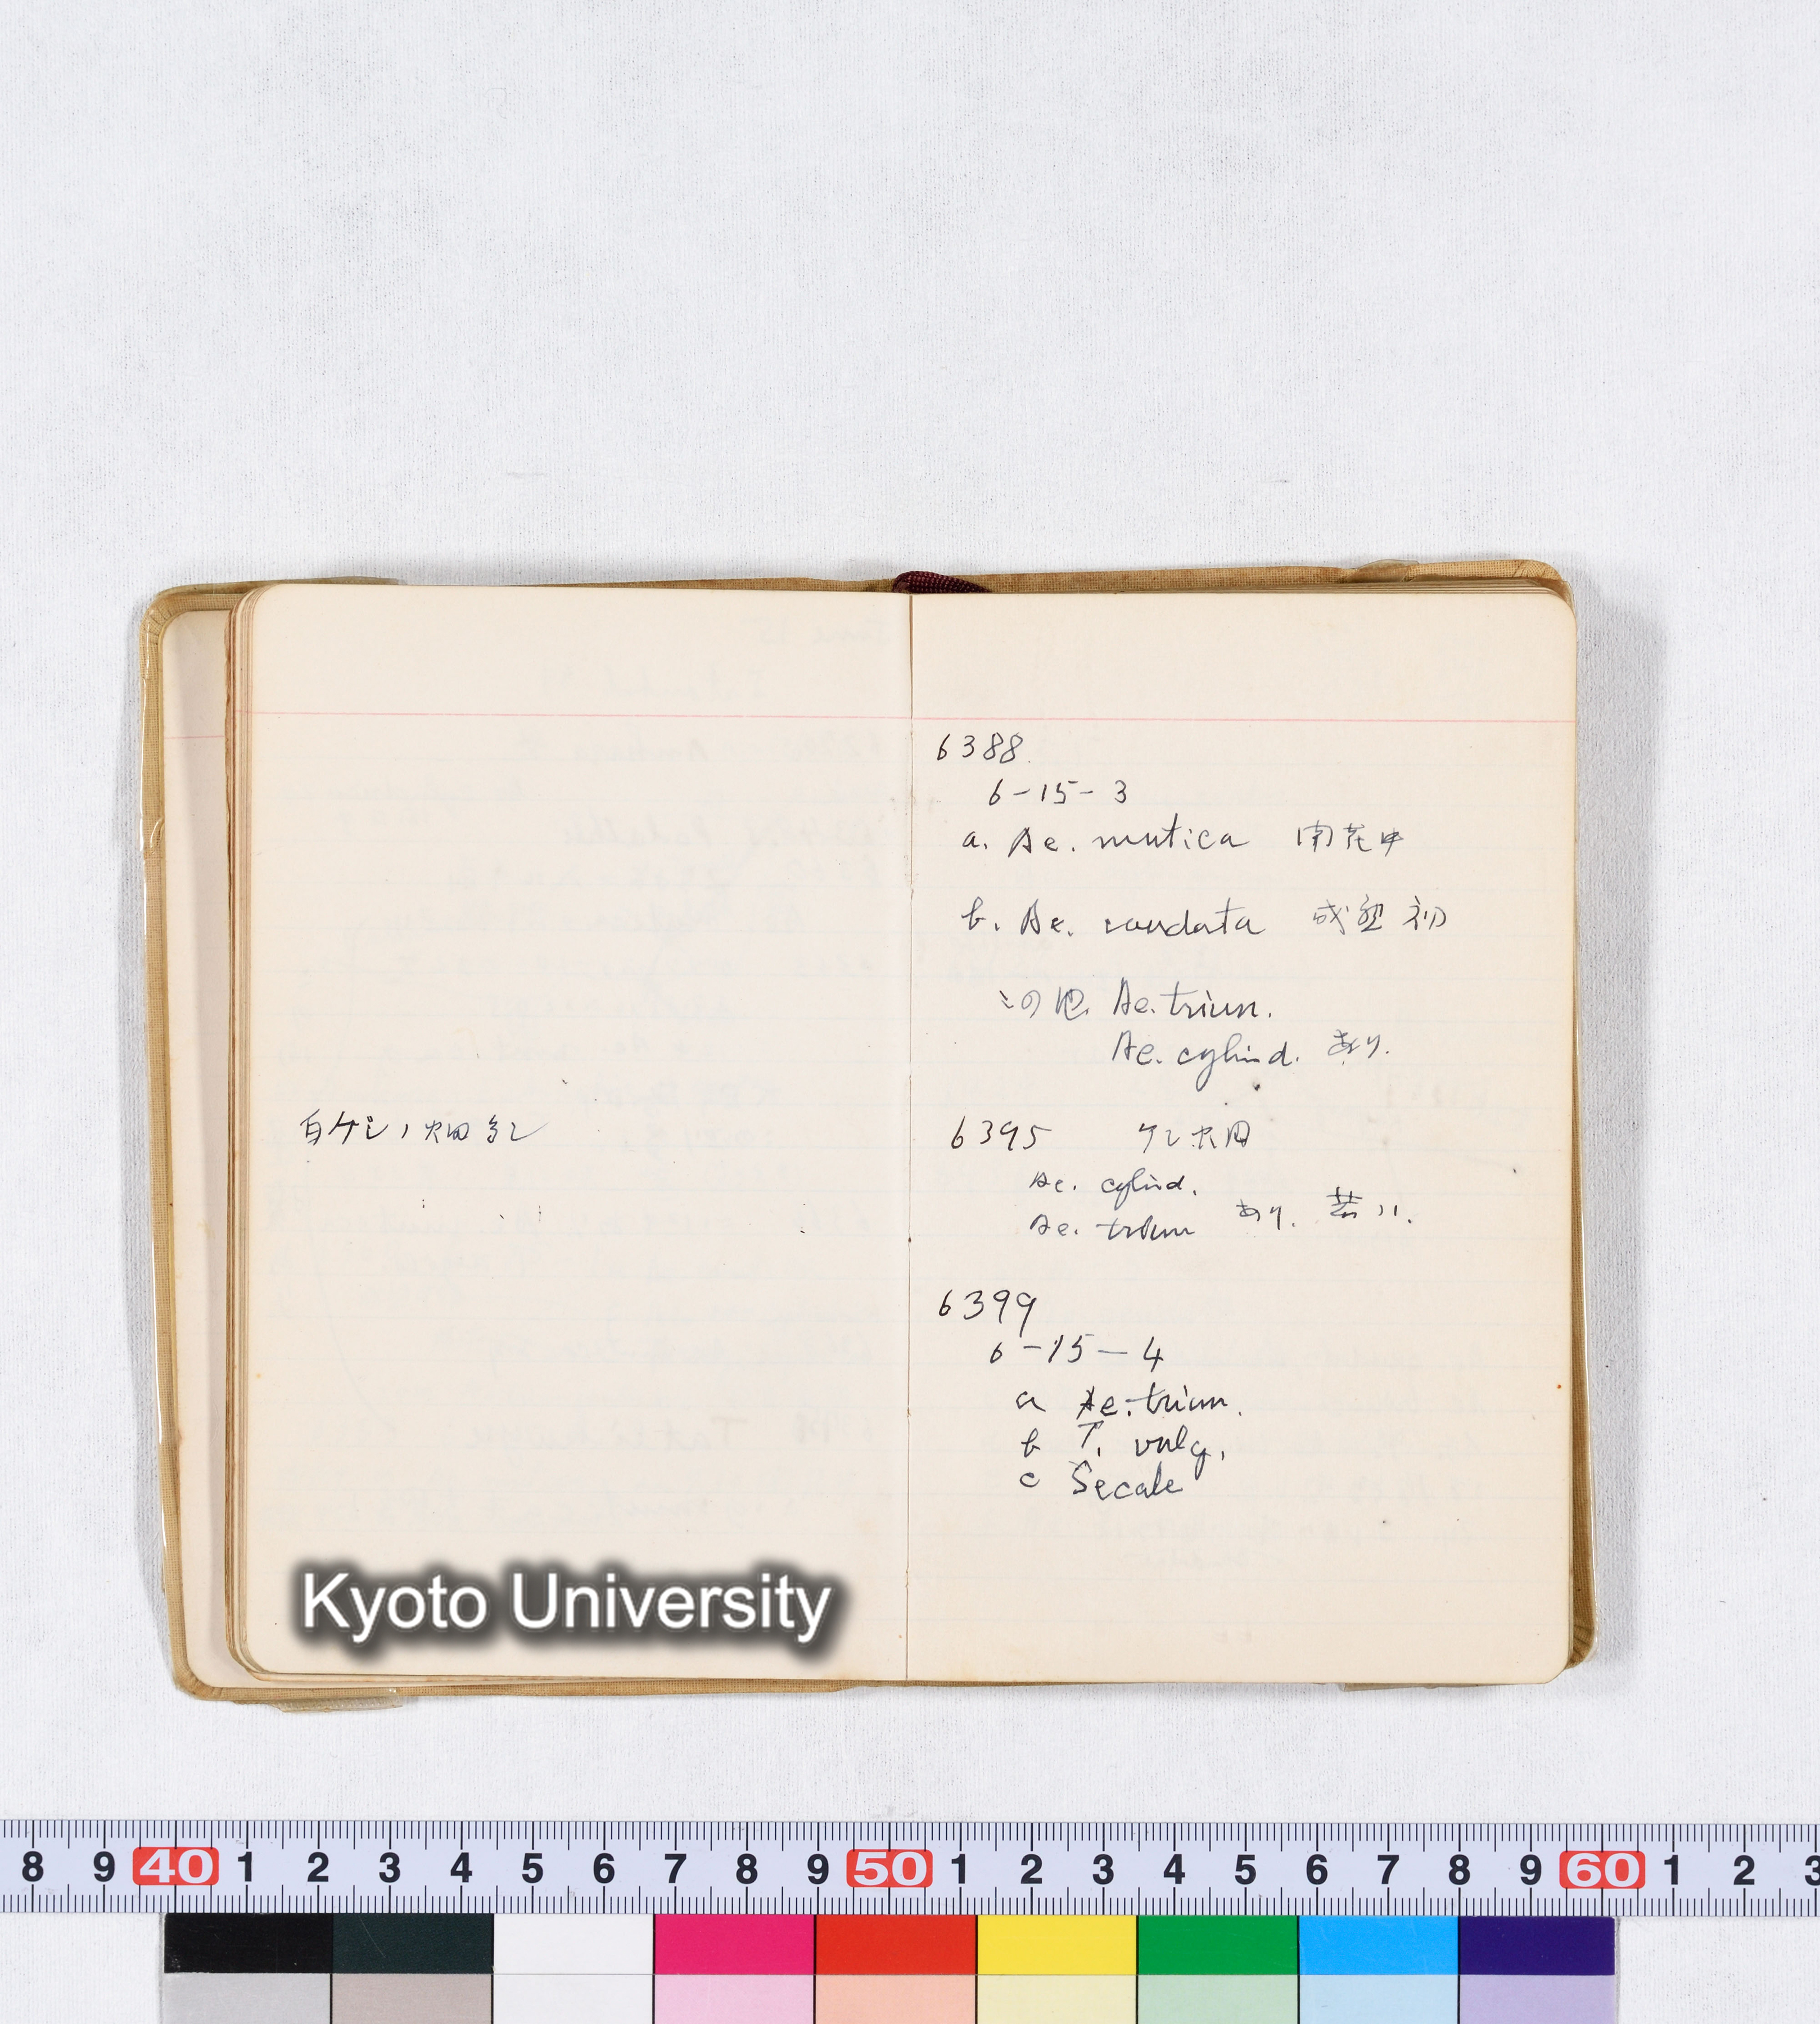 白ケシノ畑多シ
6388
6-15-3
a. Ae. mutica 開花中
b. Ae. caudata 成熟初
この他 Ae. trium.
Ae. cylind. あり.
6395 ケシ畑
Ae. cylind.
Ae. trium あり. 若い.
6399
6-15-4
a Ae. trium.
b T. vulg.
c Secale
Kyoto University
8 9 40 1 2 3 4 5 6 7 8 9 50 1 2 3 4 5 6 7 8 9 60 1 2 3